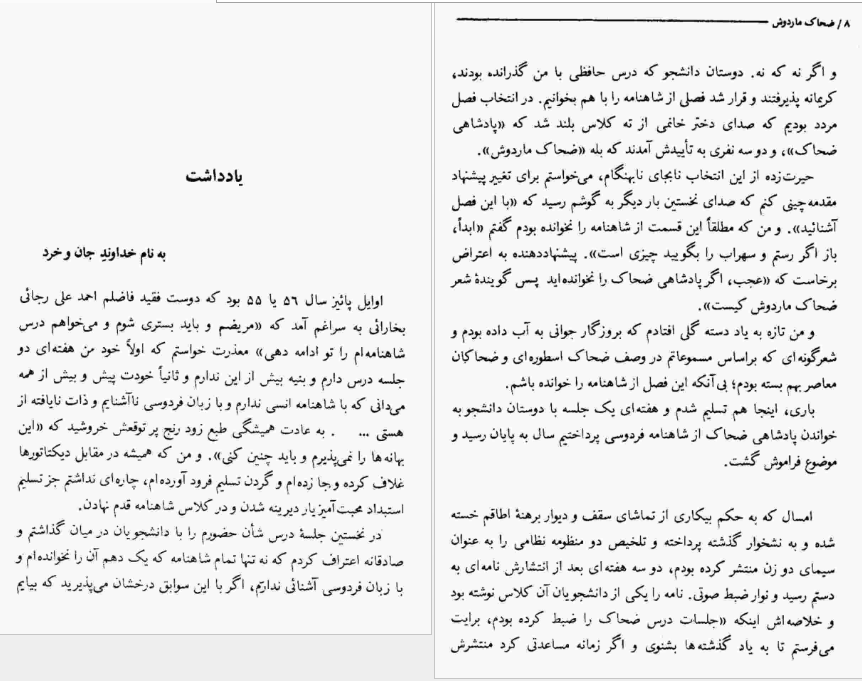 یادداشت
به نام خداوندِ جان و خرد
اوایل پائیز سال ۵۶ یا ۵۵ بود که دوست فقید فاضلم احمد علی رجائی
بخارائی به سراغم آمد که «مریضم و باید بستری شوم و می‌خواهم درس
شاهنامه‌ام را تو ادامه دهی» معذرت خواستم که اولاً خود من هفته‌ای دو
جلسه درس دارم و بنیه بیش از این ندارم و ثانیاً خودت پیش و بیش از همه
می‌دانی که با شاهنامه انسی ندارم و با زبان فردوسی ناآشنایم و ذات نایافته از
هستی ... . به عادت همیشگی طبع زود رنج پر توقعش خروشید که «این
بهانه‌ها را نمی‌پذیرم و باید چنین کنی». و من که همیشه در مقابل دیکتاتورها
غلاف کرده و جا زده‌ام و گردن تسلیم فرود آورده‌ام، چاره‌ای نداشتم جز تسلیم
استبداد محبت‌آمیز یار دیرینه شدن و در کلاس شاهنامه قدم نهادن.
در نخستین جلسهٔ درس شأن حضورم را با دانشجویان در میان گذاشتم و
صادقانه اعتراف کردم که نه تنها تمام شاهنامه که یک دهم آن را نخوانده‌ام و
با زبان فردوسی آشنائی ندارم، اگر با این سوابق درخشان می‌پذیرید که بیایم
۸ / ضحاک ماردوش
و اگر نه که نه. دوستان دانشجو که درس حافظی با من گذرانده بودند،
کریمانه پذیرفتند و قرار شد فصلی از شاهنامه را با هم بخوانیم. در انتخاب فصل
مردد بودیم که صدای دختر خانمی از ته کلاس بلند شد که «پادشاهی
ضحاک»، و دو سه نفری به تأییدش آمدند که بله «ضحاک ماردوش».
حیرت‌زده از این انتخاب نابجای نابهنگام، می‌خواستم برای تغییر پیشنهاد
مقدمه‌چینی کنم که صدای نخستین بار دیگر به گوشم رسید که «با این فصل
آشنائید». و من که مطلقاً این قسمت از شاهنامه را نخوانده بودم گفتم «ابداً،
باز اگر رستم و سهراب را بگویید چیزی است». پیشنهاددهنده به اعتراض
برخاست که «عجب، اگر پادشاهی ضحاک را نخوانده‌اید پس گویندهٔ شعر
ضحاک ماردوش کیست».
و من تازه به یاد دسته گلی افتادم که بروزگار جوانی به آب داده بودم و
شعرگونه‌ای که براساس مسموعاتم در وصف ضحاک اسطوره‌ای و ضحاکان
معاصر بهم بسته بودم؛ بی‌آنکه این فصل از شاهنامه را خوانده باشم.
باری، اینجا هم تسلیم شدم و هفته‌ای یک جلسه با دوستان دانشجو به
خواندن پادشاهی ضحاک از شاهنامه فردوسی پرداختیم سال به پایان رسید و
موضوع فراموش گشت.
امسال که به حکم بیکاری از تماشای سقف و دیوار برهنهٔ اطاقم خسته
شده و به نشخوار گذشته پرداخته و تلخیص دو منظومه نظامی را به عنوان
سیمای دو زن منتشر کرده بودم، دو سه هفته‌ای بعد از انتشارش نامه‌ای به
دستم رسید و نوار ضبط صوتی. نامه را یکی از دانشجویان آن کلاس نوشته بود
و خلاصه‌اش اینکه «جلسات درس ضحاک را ضبط کرده بودم، برایت
می‌فرستم تا به یاد گذشته‌ها بشنوی و اگر زمانه مساعدتی کرد منتشرش